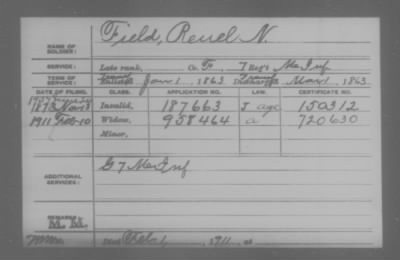 Field, Reuel N.
NAME OF SOLDIER:
SERVICE: Late rank, Co. 7 Reg't Me Inf
TERM OF SERVICE: Enlisted Jan 1, 1863 Discharged Mar 1, 1863
DATE OF FILING. CLASS. APPLICATION NO. LAW. CERTIFICATE NO.
1873 Nov 3 Invalid, 187663 J age 150312
1911 Feb 10 Widow, 958464 a 720630
Minor,
ADDITIONAL SERVICES: G 7 Me Inf
REMARKS:
M. M.
Died Feb 1, 1911, at